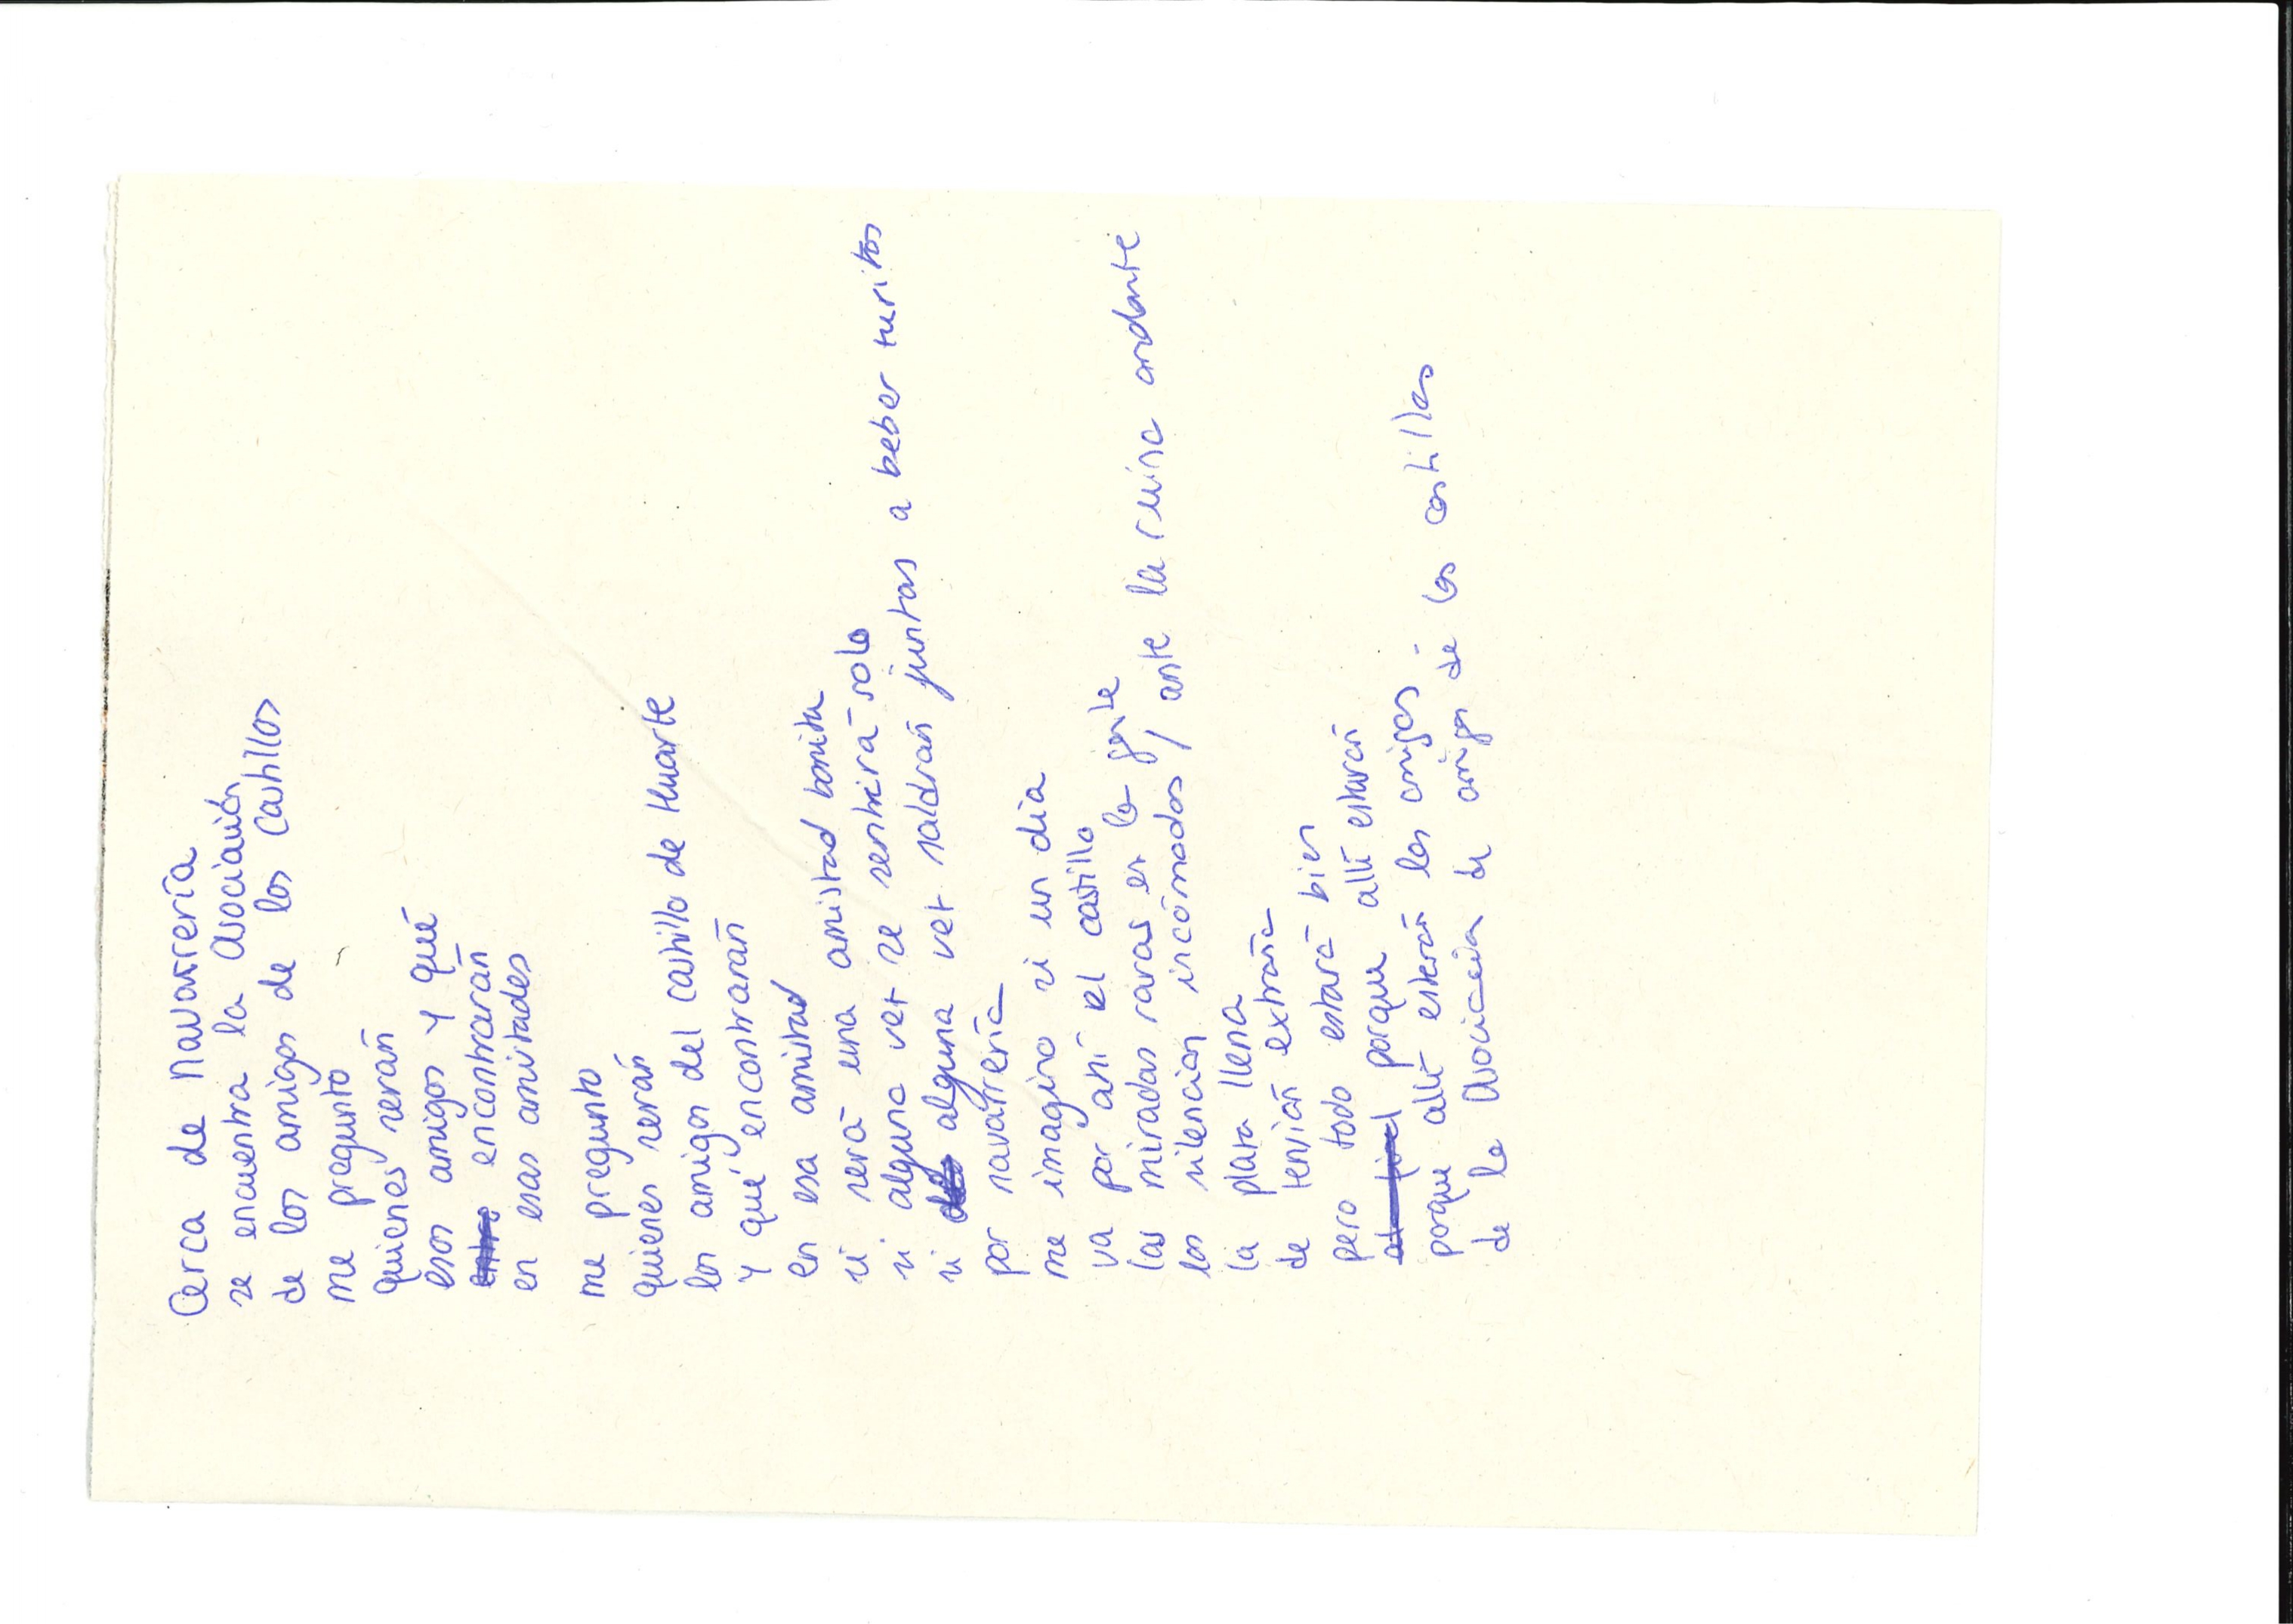 Cerca de Navarrería
se encuentra la Asociación
de los amigos de los Castillos
me pregunto
quienes serán
esos amigos y qué
entre encontrarán
en esas amistades
me pregunto
quienes serán
los amigos del castillo de Huarte
y qué encontrarán
en esa amistad
si será una amistad bonita
si alguna vez se sentirá solo
si alguna vez saldrán juntos a beber zuritos
por navarrería
me imagino si un día
va por ahí el castillo
las miradas raras en la gente
los silencios incómodos / ante la ruina andante
la plaza llena
de tensión extraña
pero todo estará bien
al final porque allí estarán
porque allí estarán los amigos
de la Asociación de amigos de los castillos